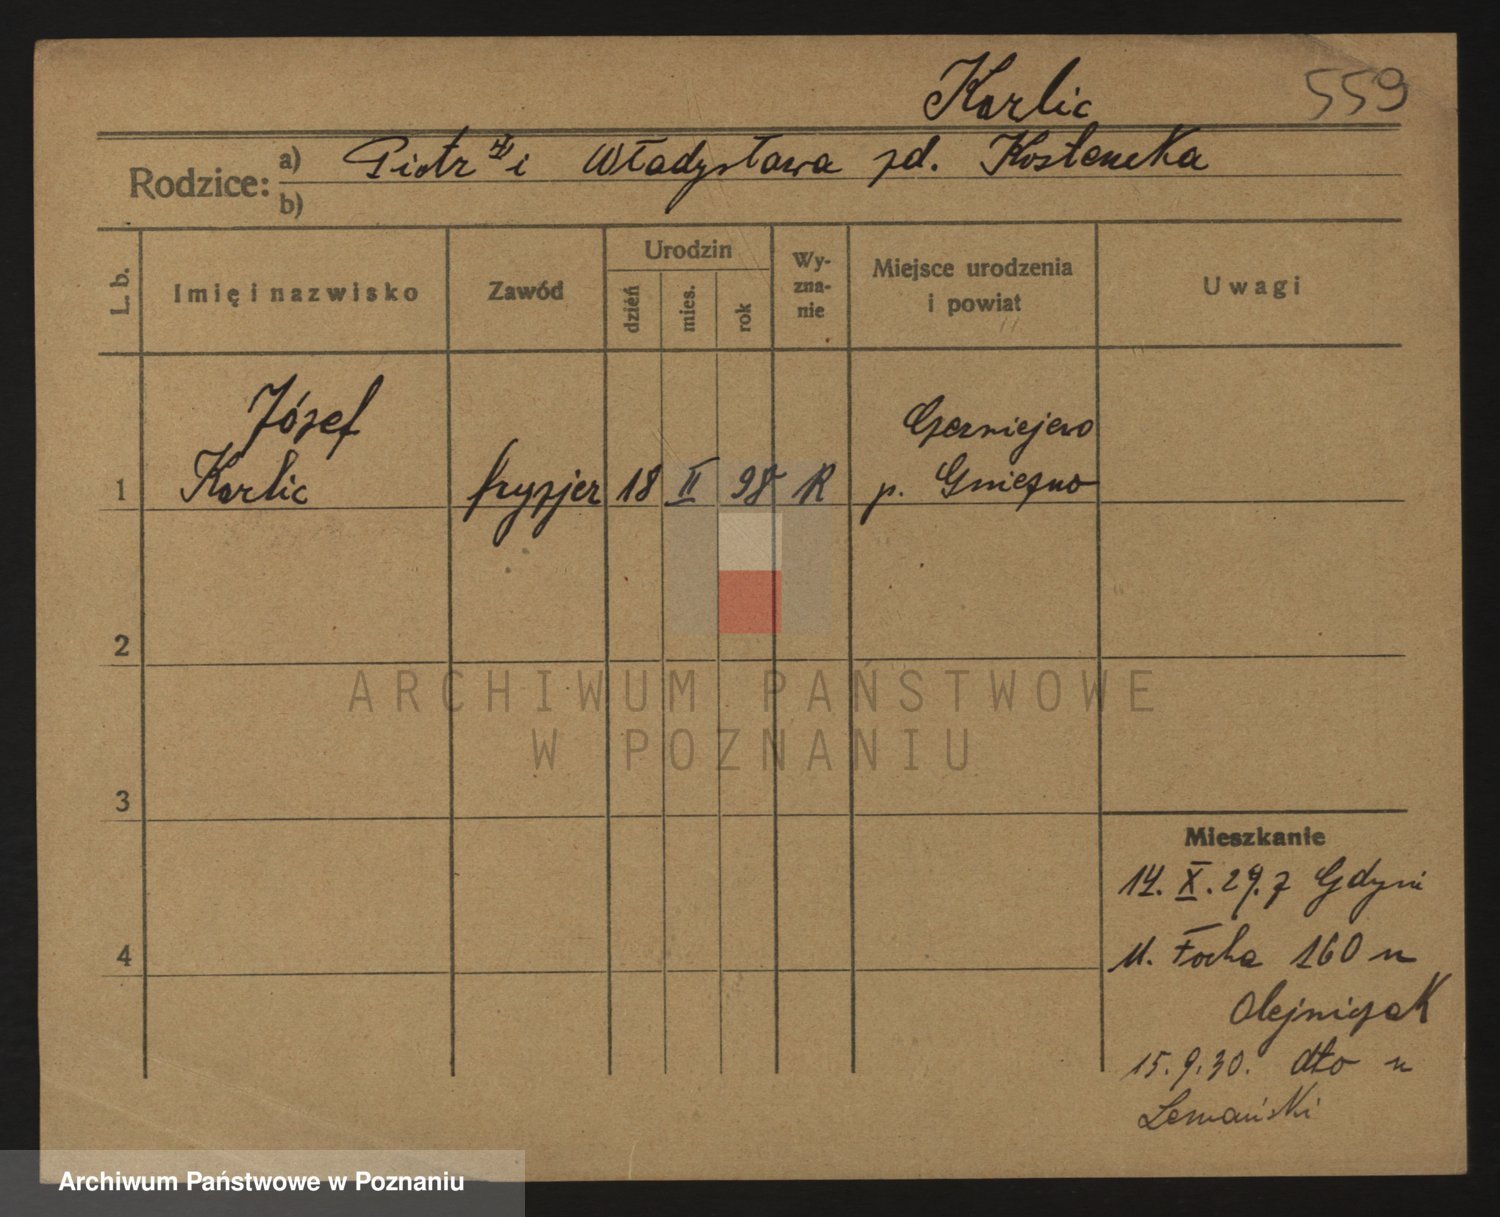 Karlic 559
Rodzice: a) Piotr i Władysława zd.
b)
L. b. Imię i nazwisko Zawód Urodzin dzień mies. rok Wy-zna-nie Miejsce urodzenia i powiat Uwagi
Józef Czerniejewo
1 Karlic fryzjer 18 II 98 R p. Gniezno
2
ARCHIWUM PAŃSTWOWE
W POZNANIU
3
Mieszkanie
14. X. 29. z Gdyni
4 ul. Focha 160 u
Olejniczak
15.9.30. dto u
Lemański
Archiwum Państwowe w Poznaniu